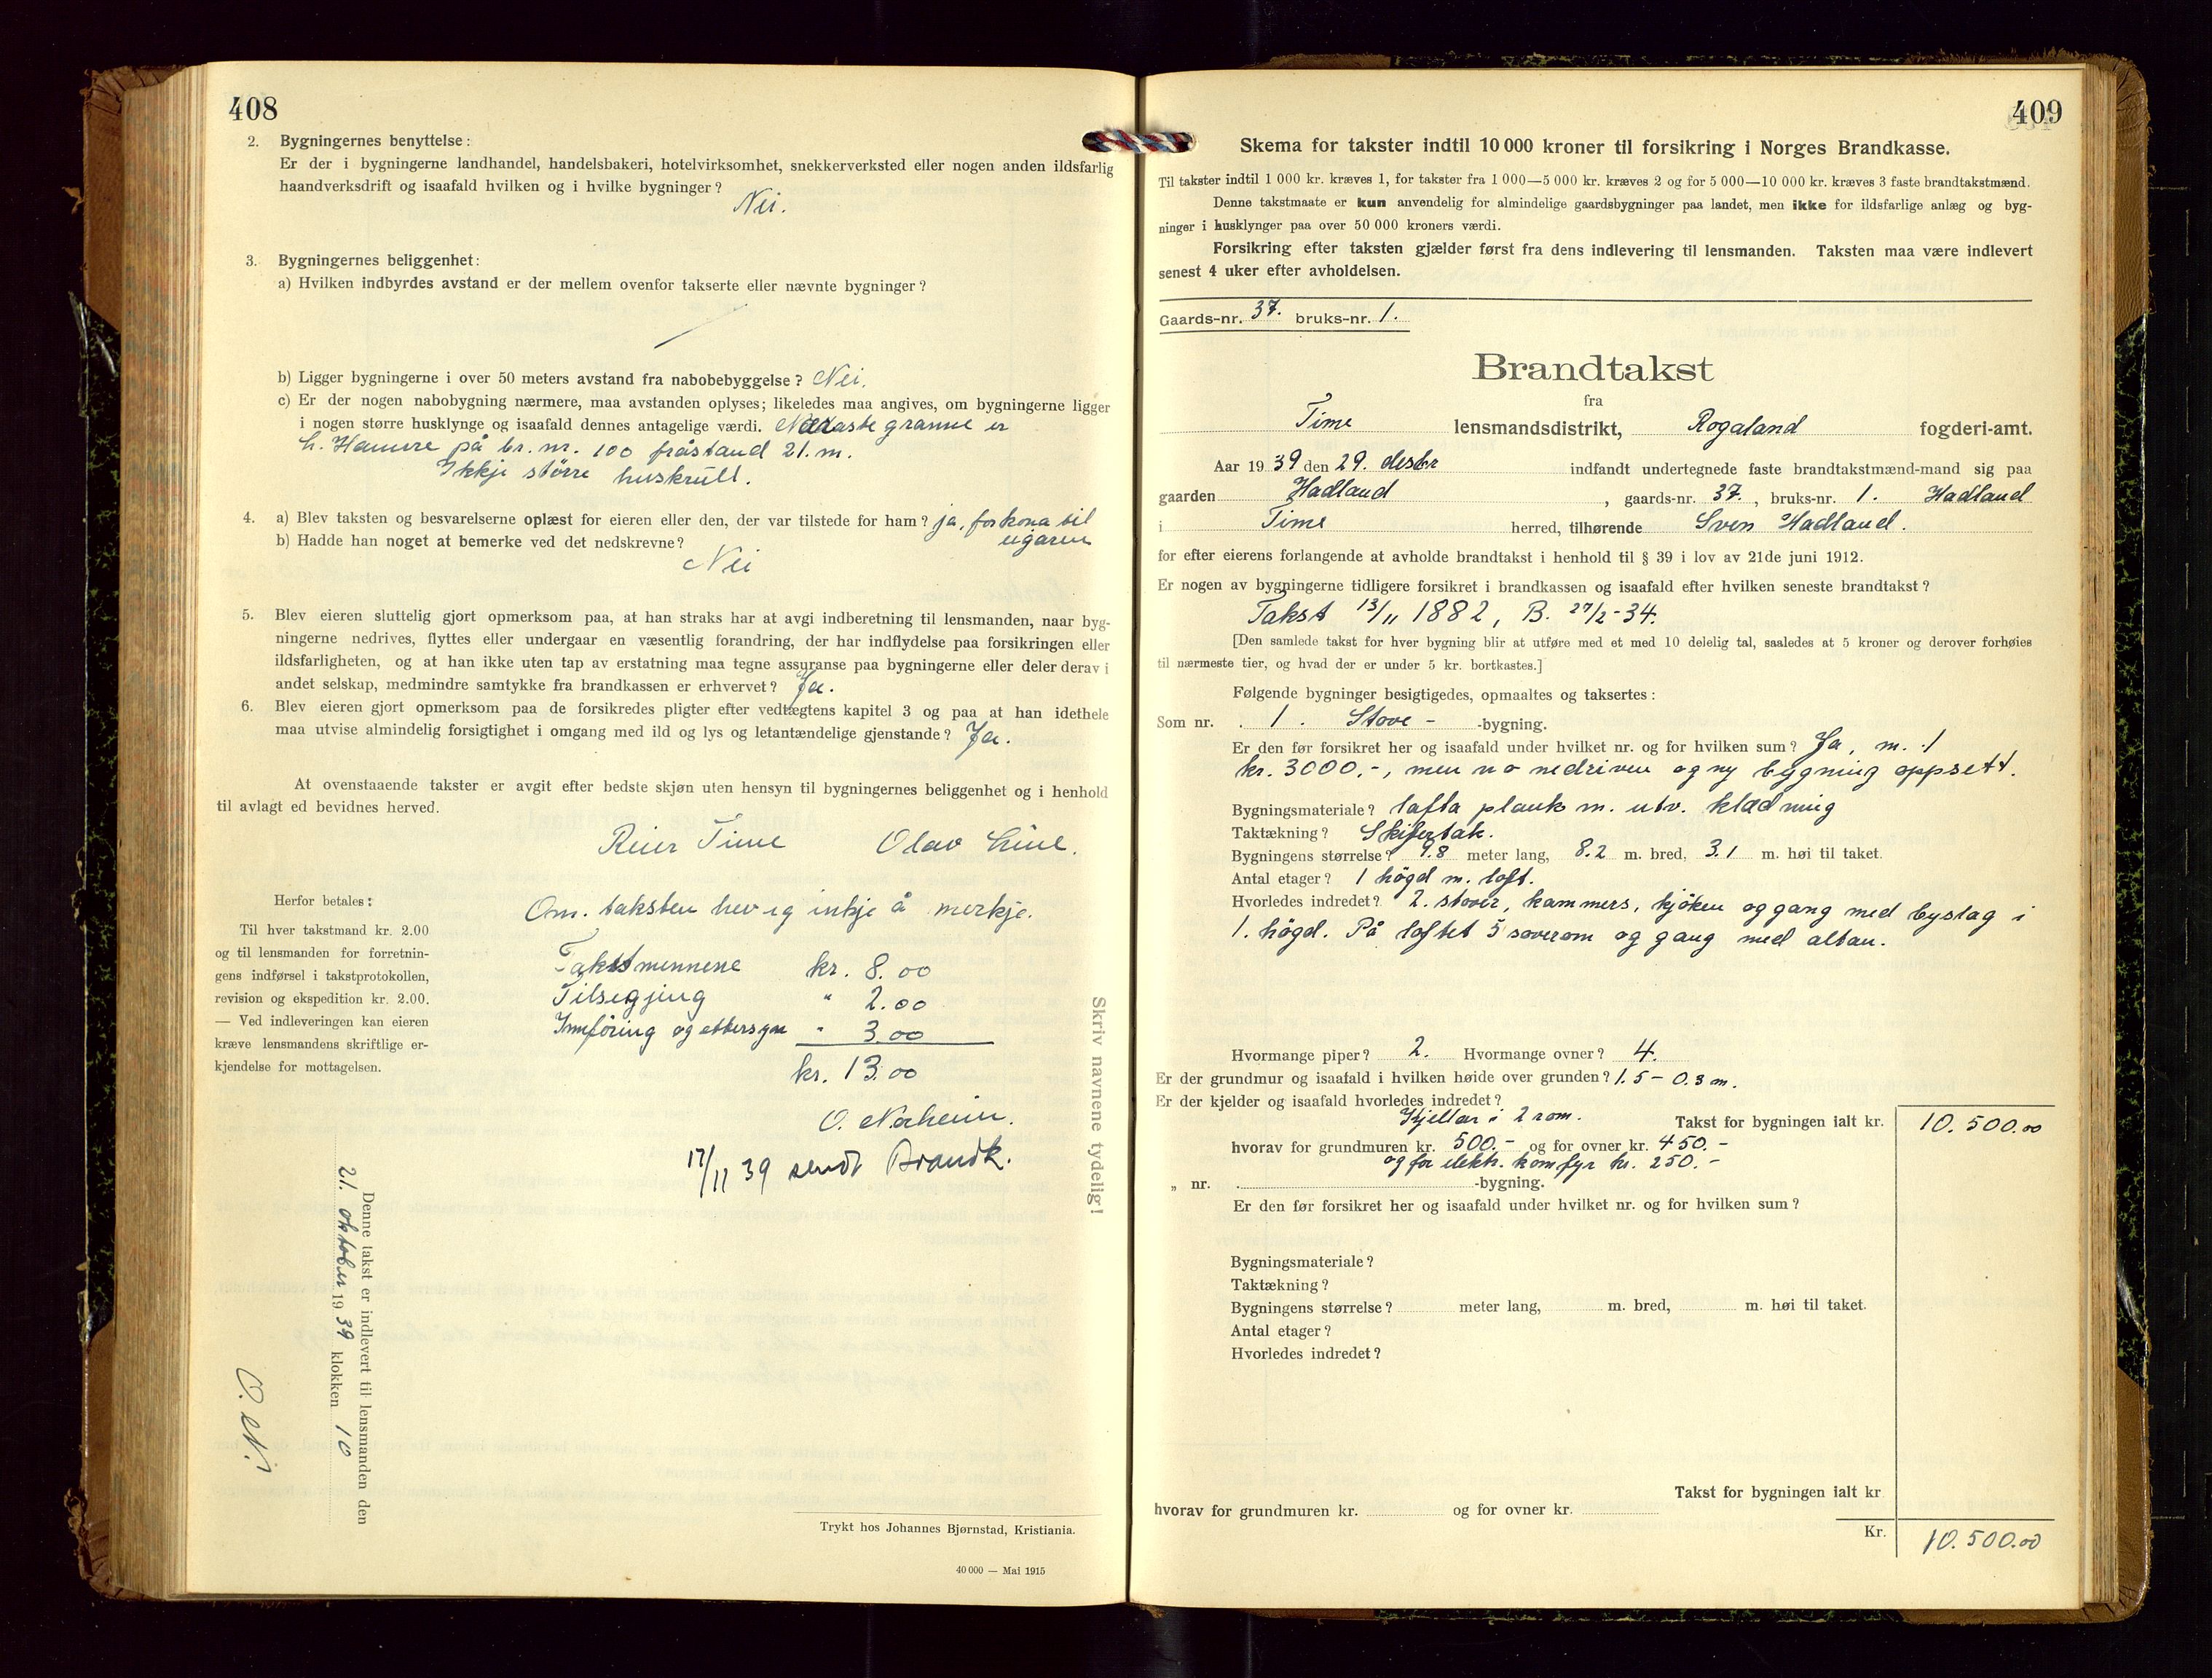 408
2. Bygningernes benyttelse:
Er der i bygningerne landhandel, handelsbakeri, hotelvirksomhet, snekkerverksted eller nogen anden ildsfarlig
haandverksdrift og isaafald hvilken og i hvilke bygninger?
Nei.
3. Bygningernes beliggenhet:
a) Hvilken indbyrdes avstand er der mellem ovenfor takserte eller nævnte bygninger?
b) Ligger bygningerne i over 50 meters avstand fra nabobebyggelse? Nei.
c) Er der nogen nabobygning nærmere, maa avstanden oplyses; likeledes maa angives, om bygningerne ligger
i nogen større husklynge og isaafald dennes antagelige værdi. Næraste granne er
h. Hamre på br. nr. 100 fråstand 21. m.
Ikkje större huskrull.
4. a) Blev taksten og besvarelserne oplæst for eieren eller den, der var tilstede for ham? ja, for kona til
eigaren
b) Hadde han noget at bemerke ved det nedskrevne?
Nei
5. Blev eieren sluttelig gjort opmerksom paa, at han straks har at avgi indberetning til lensmanden, naar byg-
ningerne nedrives, flyttes eller undergaar en væsentlig forandring, der har indflydelse paa forsikringen eller
ildsfarligheten, og at han ikke uten tap av erstatning maa tegne assuranse paa bygningerne eller deler derav i
andet selskap, medmindre samtykke fra brandkassen er erhvervet? Ja.
6. Blev eieren gjort opmerksom paa de forsikredes pligter efter vedtægtens kapitel 3 og paa at han idethele
maa utvise almindelig forsigtighet i omgang med ild og lys og letantændelige gjenstande? Ja.
At ovenstaaende takster er avgit efter bedste skjøn uten hensyn til bygningernes beliggenhet og i henhold
til avlagt ed bevidnes herved.
Reier Time Olav Line.
Herfor betales:
Til hver takstmand kr. 2.00
og til lensmanden for forretnin-
gens indførsel i takstprotokollen,
revision og ekspedition kr. 2.00.
— Ved indleveringen kan eieren
kræve lensmandens skriftlige er-
kjendelse for mottagelsen.
Om. taksten hev eg inkje å merkje.
Takstmennene kr. 8.00
Tilsegjing " 2.00
Innföring og ettersyn " 3.00
kr. 13.00
O. Nærheim.
17/11 39 sendt Brandk.
Skriv navnene tydelig!
Denne takst er indlevert til lensmanden den
21. oktober 1939 klokken 10
O. N.
Trykt hos Johannes Bjørnstad, Kristiania.
40 000 — Mai 1915
409
Skema for takster indtil 10 000 kroner til forsikring i Norges Brandkasse.
Til takster indtil 1 000 kr. kræves 1, for takster fra 1 000—5 000 kr. kræves 2 og for 5 000—10 000 kr. kræves 3 faste brandtakstmænd.
Denne takstmaate er kun anvendelig for almindelige gaardsbygninger paa landet, men ikke for ildsfarlige anlæg og byg-
ninger i husklynger paa over 50 000 kroners værdi.
Forsikring efter taksten gjælder først fra dens indlevering til lensmanden. Taksten maa være indlevert
senest 4 uker efter avholdelsen.
Gaards-nr. 37. bruks-nr. 1.
Brandtakst
fra
Time lensmandsdistrikt, Rogaland fogderi-amt.
Aar 1939 den 29. desbr indfandt undertegnede faste brandtakstmænd-mand sig paa
gaarden Hadland, gaards-nr. 37., bruks-nr. 1. Hadland
i Time herred, tilhørende Sven Hadland.
for efter eierens forlangende at avholde brandtakst i henhold til § 39 i lov av 21de juni 1912.
Er nogen av bygningerne tidligere forsikret i brandkassen og isaafald efter hvilken seneste brandtakst?
Takst 13/11 1882, B. 27/2-34.
[Den samlede takst for hver bygning blir at utføre med et med 10 delelig tal, saaledes at 5 kroner og derover forhøies
til nærmeste tier, og hvad der er under 5 kr. bortkastes.]
Følgende bygninger besigtigedes, opmaaltes og taksertes:
Som nr. 1. Stove- -bygning.
Er den før forsikret her og isaafald under hvilket nr. og for hvilken sum? Ja, m. 1
kr. 3000.-, men no nedriven og ny bygning oppsett.
Bygningsmateriale? lafta plank m. utv. klædning
Taktækning? Skifertak.
Bygningens størrelse? 9.8 meter lang, 8.2 m. bred, 3.1 m. høi til taket.
Antal etager? 1 högd m. loft.
Hvorledes indredet? 2. stover, kammers, kjöken og gang med byslag i
1. högd. På loftet 5 soverom og gang med altan.
Hvormange piper? 2. Hvormange ovner? 4.
Er der grundmur og isaafald i hvilken høide over grunden? 1.5 - 0.3 m.
Er der kjelder og isaafald hvorledes indredet?
Kjellar i 2 rom. Takst for bygningen ialt kr. 10.500.00
hvorav for grundmuren kr. 500.- og for ovner kr. 450.-
og for elektr. komfyr kr. 250.-
„ nr. -bygning.
Er den før forsikret her og isaafald under hvilket nr. og for hvilken sum?
Bygningsmateriale?
Taktækning?
Bygningens størrelse? meter lang, m. bred, m. høi til taket.
Antal etager?
Hvorledes indredet?
Takst for bygningen ialt kr
hvorav for grundmuren kr. og for ovner kr.
Kr. 10.500.00